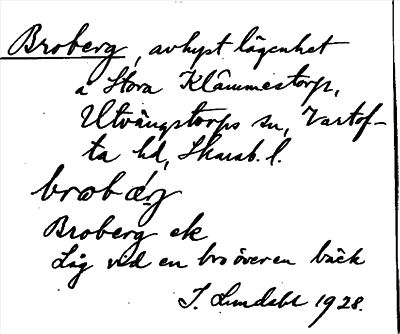 Broberg, avhyst lägenhet
å Stora Klämmestorp,
Utvängstorps sn, Vartof-
ta hd, Skarab. l.
brobærj
Broberg ek
Låg vid en bro över en bäck
J. Lundahl 1928.